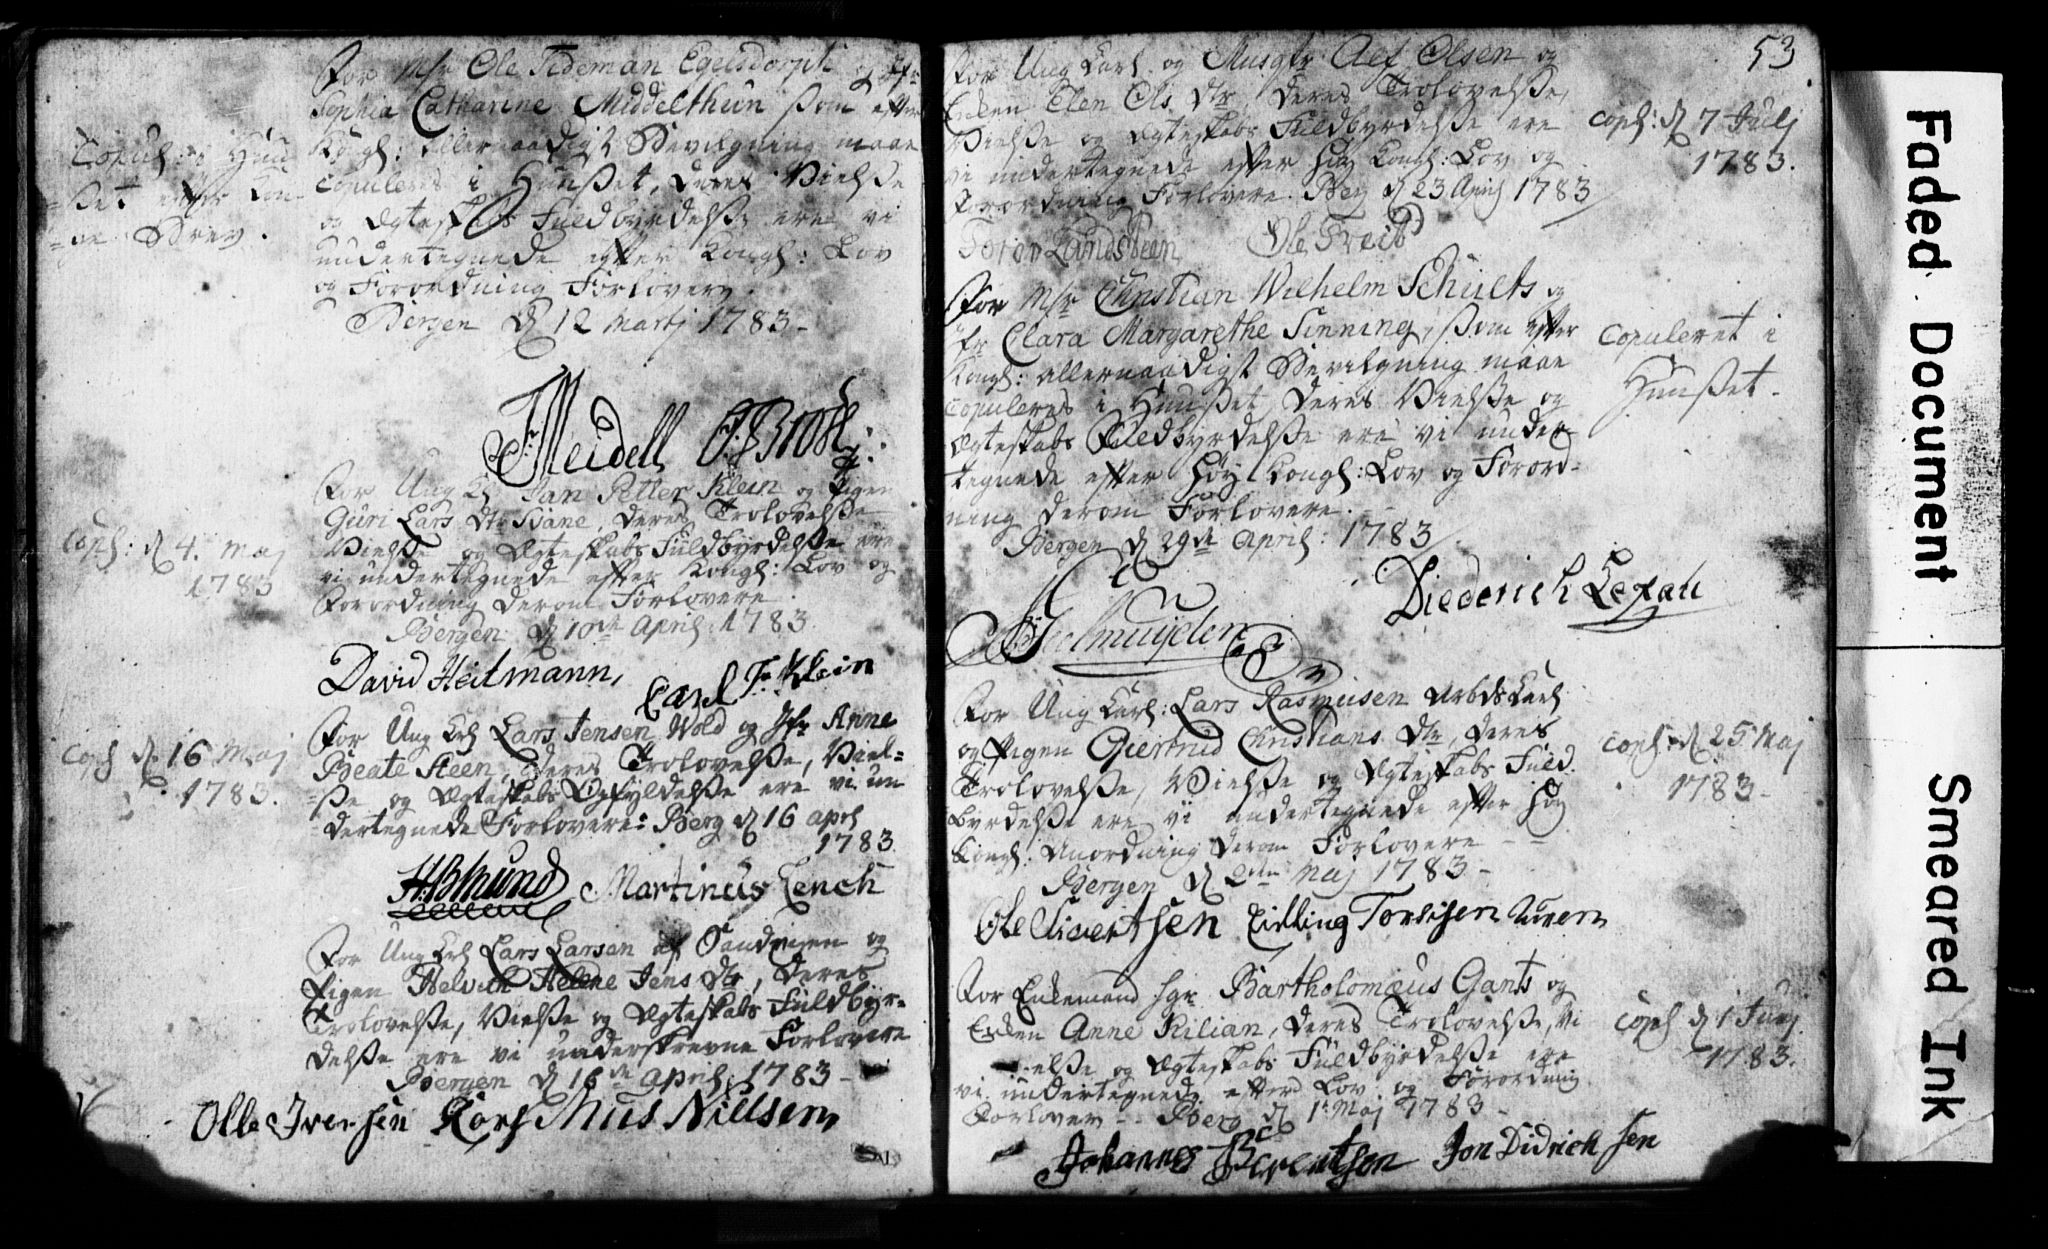 For Msr Ole Tideman Egelsdorph og Jfr
Sophia Catharine Middelthun som efter
Kongl: allernaadigst Bevilgning maae
Copuleres i Huuset, deres Vielse
og Ægteskabs Fuldbyrdelse ere vi
undertegnede efter Kongl: Lov
og Forordning Forlovere.
Bergen d 12 Martj 1783
Copul: i Huu
set efter Kon
ge Brev.
Meidell
For Ung K: Jan Petter Klein og Pigen
Guri Lars Dtr Svane, deres Trolovelse
Vielse og Ægteskabs Fuldbyrdelse ere
vi undertegnede efter Kongl: Lov og
Forordning derom Forlovere
Bergen d 10de April 1783.
Copl: d 4. Maj
1783
David Heitmann, Carl Fr Klein
For Ung Krl Lars Jensen Wold og Jfr Anne
Beate Steen, deres Trolovelse, Viel-
se og Ægteskabs Opfyldelse ere vi un
dertegnede Forlovere: Berg d 16 April
1783
Copl d. 16 Maj
1783.
Martinus Lench
For Ung Krl Lars Larsen af Sandvigen og
Pigen Helvich Helene Jens Dtr, deres
Trolovelse, Vielse og Ægteskabs Fuldbyr-
delse ere vi underskrevne Forlovere
Bergen d 16de April 1783
Olle Iversen Rasmus Nillsen
53
For Ung Karl og Musqtr Aef Olsen og
Enken Elen Ols Dtr, deres Trolovelse,
Vielse og Ægteskabs Fuldbyrdelse ere
vi undertegnede efter høy Kongl: Lov og
Forordning Forlovere. Berg d 23 April 1783
Copl: d 7 Julj
1783.
Ole Treit
For Msr Christian Wilhelm Schults og
Jfr Clara Margarethe Sinning, som efter
Kongl: allernaadigst Bevilgning maae
Copuleres i Huuset, deres Vielse og
Ægteskabs Fuldbyrdelse ere vi under
tegnede efter Høy Kongl: Lov og Forord-
ning derom Forlovere.
Bergen d 29de April: 1783
Copuleret i
Huuset.
Geelmuyden Diederich Lexau
For Ung Karl: Lars Rasmusen Arbds Karl
og Pigen Giertrud Christians Dtr, deres
Trolovelse, Vielse og Ægteskabs Fuld
byrdelse ere vi undertegnede efter Høy
Kongl: Anordning derom Forlovere
Bergen d 2den Maj 1783
Copl: d. 25 Maj
1783
Ole Sivertsen Eilling
For Enkemand Sgr Bartholomæus Gants og
Enken Anne Kilian, deres Trolovelse, Vi
else og Ægteskabs Fuldbyrdelse ere
vi undertegnede efter Lov og Forordning
Forlover -- Berg d 1te Maj 1783
Copl d 1 Junj
1783.
Johannes Berentsen Jon Didrichsen
Faded Document
Smeared Ink